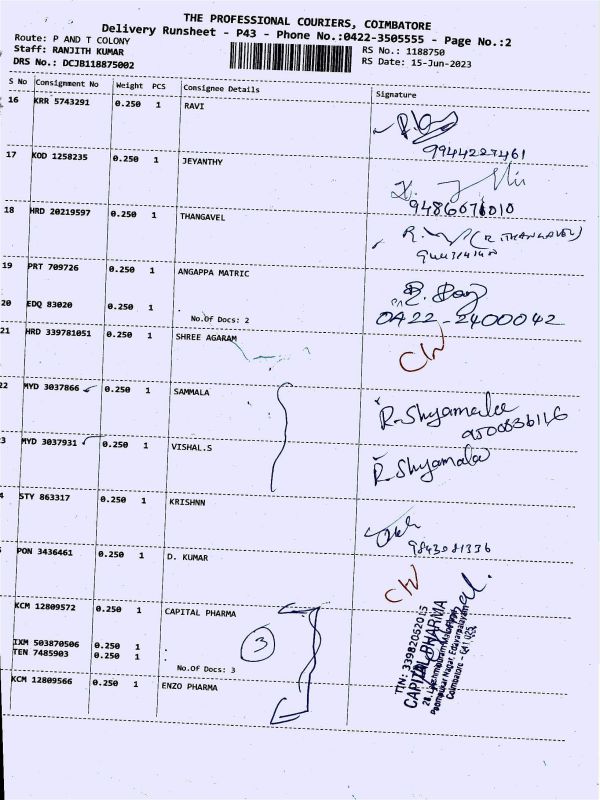 THE PROFESSIONAL COURIERS, COIMBATORE
Delivery Runsheet - P43 - Phone No.:0422-3505555 - Page No.:2
Route: P AND T COLONY
Staff: RANJITH KUMAR RS No.: 1188750
DRS No.: DCJB118875002 RS Date: 15-Jun-2023
S No Consignment No Weight PCS Consignee Details Signature
16 KRR 5743291 0.250 1 RAVI
9944227461
17 KOD 1258235 0.250 1 JEYANTHY
9486676010
18 HRD 20219597 0.250 1 THANGAVEL
(R.THANGAVEL)
19 PRT 709726 0.250 1 ANGAPPA MATRIC
20 EDQ 83020 0.250 1 .
No.Of Docs: 2
0422-2400042
21 HRD 339781051 0.250 1 SHREE AGARAM
22 MYD 3037866 0.250 1 SAMMALA
R. Shyamala
9500836146
3 MYD 3037931 0.250 1 VISHAL.S
R. Shyamala
4 STY 863317 0.250 1 KRISHNN
9843081336
PON 3436461 0.250 1 D. KUMAR
KCM 12809572 0.250 1 CAPITAL PHARMA
IXM 503870506 0.250 1 .
TEN 7485903 0.250 1 .
No.Of Docs: 3
3
TIN: 33982052015
CAPITAL PHARMA
Coimbatore
KCM 12809566 0.250 1 ENZO PHARMA